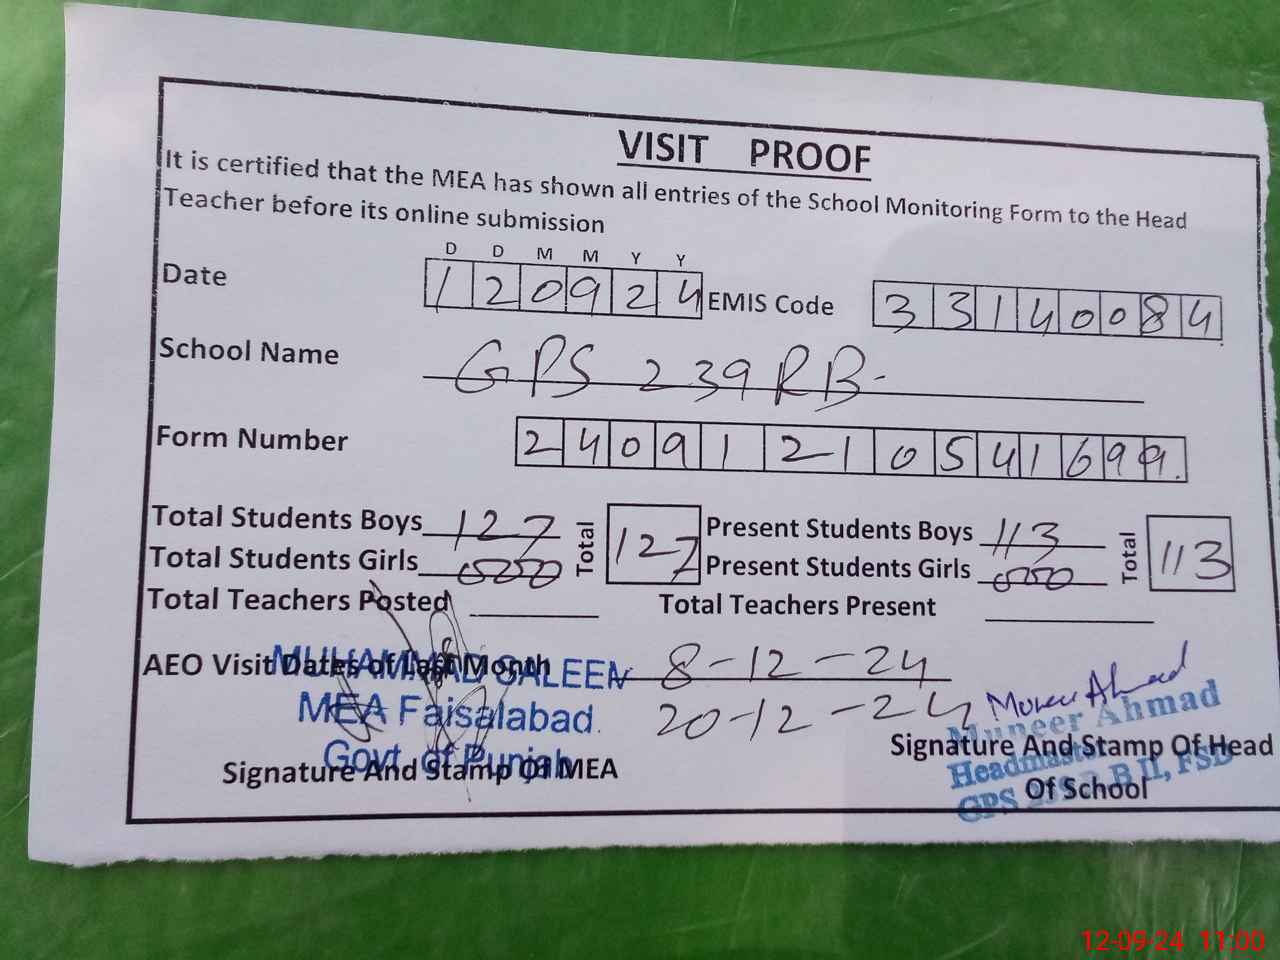 VISIT PROOF
It is certified that the MEA has shown all entries of the School Monitoring Form to the Head
Teacher before its online submission
D D M M Y Y
Date 1 2 0 9 2 4 EMIS Code 3 3 1 4 0 0 8 4
School Name GPS 239 RB
Form Number 2 4 0 9 1 2 1 0 5 4 1 6 9 9
Total Students Boys 127 Total 127 Present Students Boys 113 Total 113
Total Students Girls 000 Present Students Girls 000
Total Teachers Posted Total Teachers Present
AEO Visit Dates of Last Month 8-12-24
20-12-24
MUHAMMAD SALEEM
MEA Faisalabad
Govt. of Punjab
Signature And Stamp Of MEA
Muneer Ahmad
Muneer Ahmad
Headmaster
GPS FSD
Signature And Stamp Of Head
Of School
12-09-24 11:00